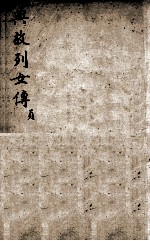 典故列女傳
貞